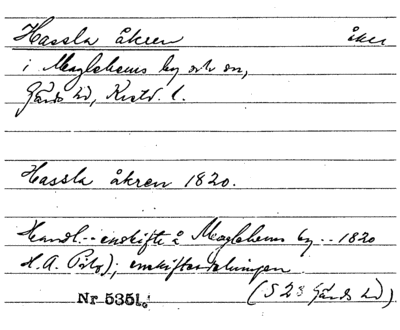 Hassla åkren åker
i Maglehems by och sn,
Gärds hd, Krstd. l.
Hassla åkren 1820.
Handl. - enskifte å Maglehems by - - 1820
enskiftesdelningen
Nr 5351. (S 28 Gärds hd)